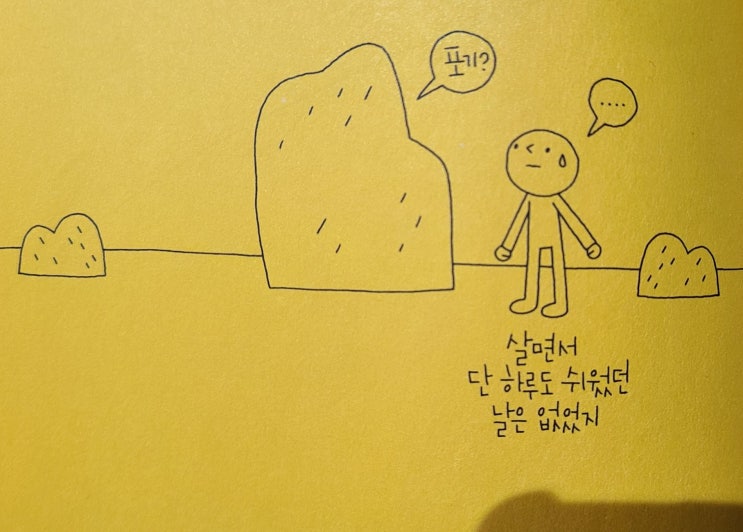 포기?
....
살면서
단 하루도 쉬웠던
날은 없었지